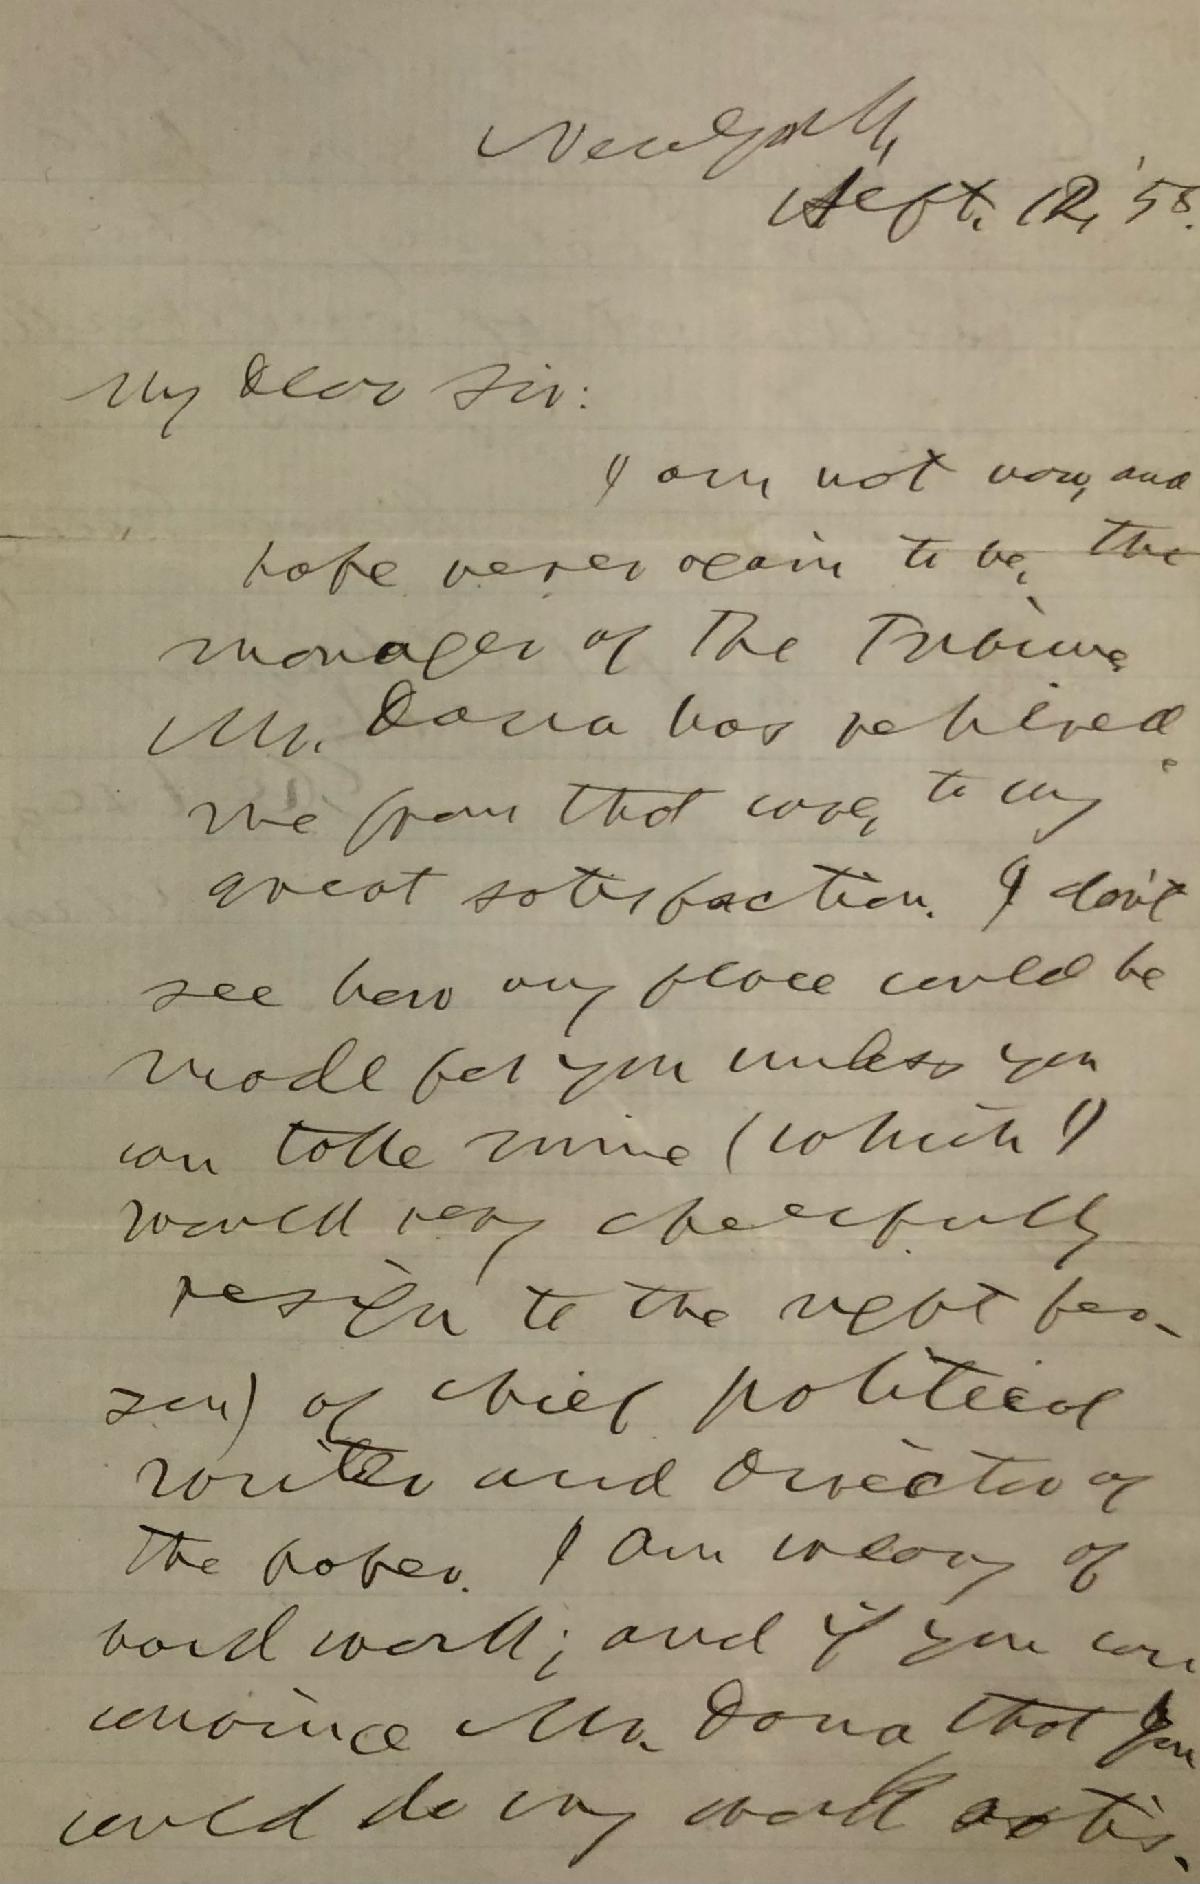 New York,
Sept. 12, '58.
My Dear Sir:
I am not now, and
hope never again to be, the
manager of The Tribune.
Mr. Dana has relieved
me from that care, to my
great satisfaction. I don't
see how any place could be
made for you unless you
can take mine (which I
would very cheerfully
resign to the right per-
son) of chief political
writer and director of
the paper. I am weary of
hard work; and if you can
convince Mr. Dana that you
could do my work satis-